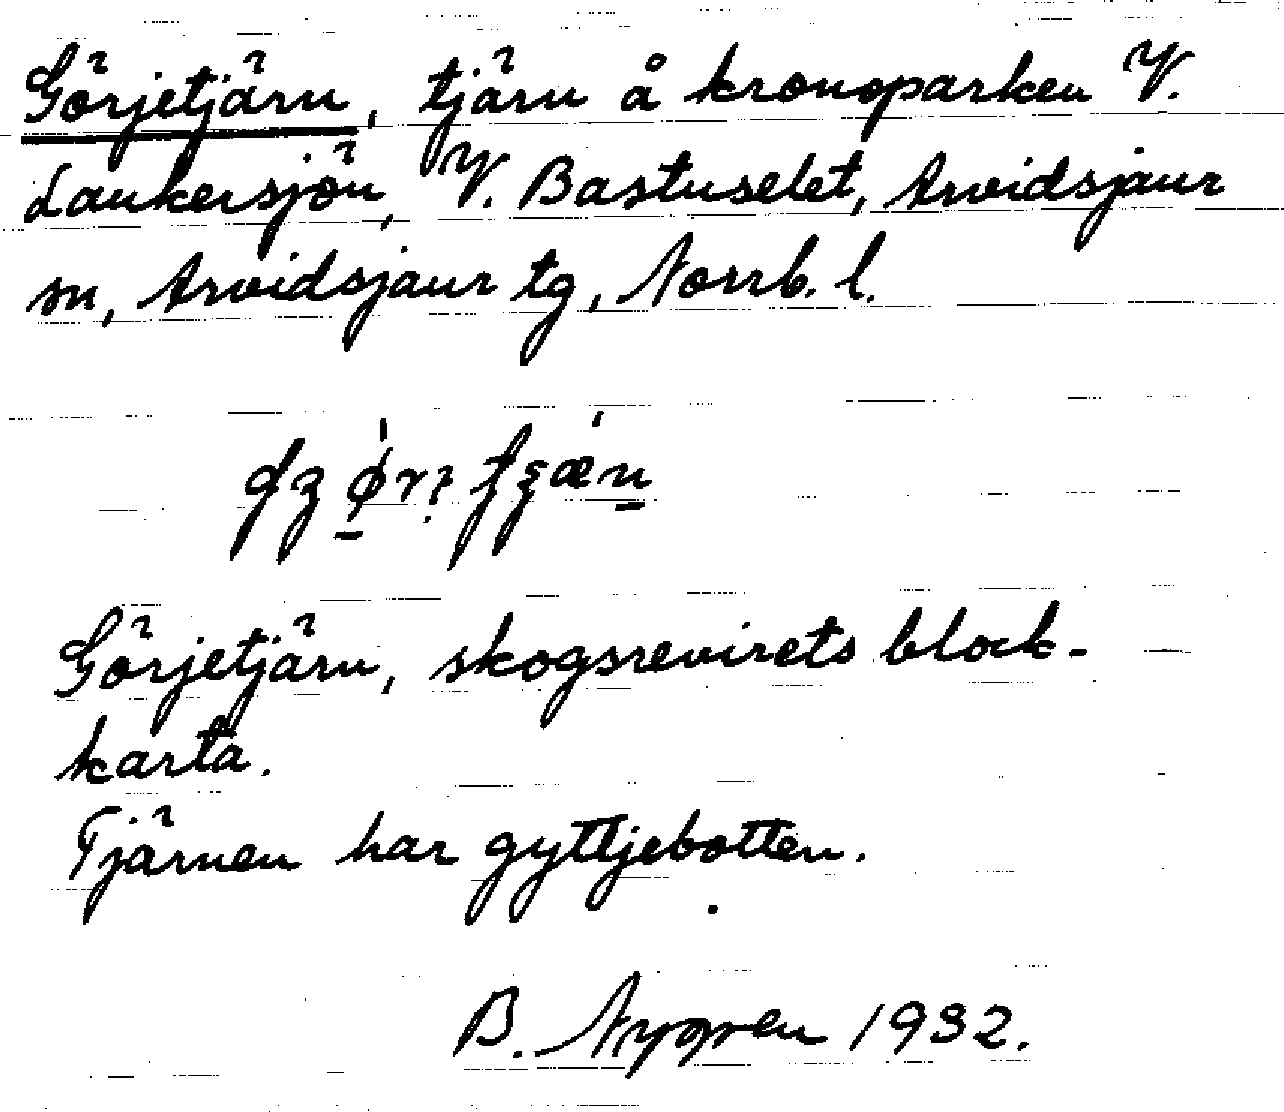 Görjetjärn, tjärn å kronoparken V.
Laukersjön, V. Bastuselet, Arvidsjaur
sn, Arvidsjaur tg, Norrb. l.
Görjetjärn, skogsrevirets block-
karta.
Tjärnen har gyttjebotten.
B. Nygren 1932.